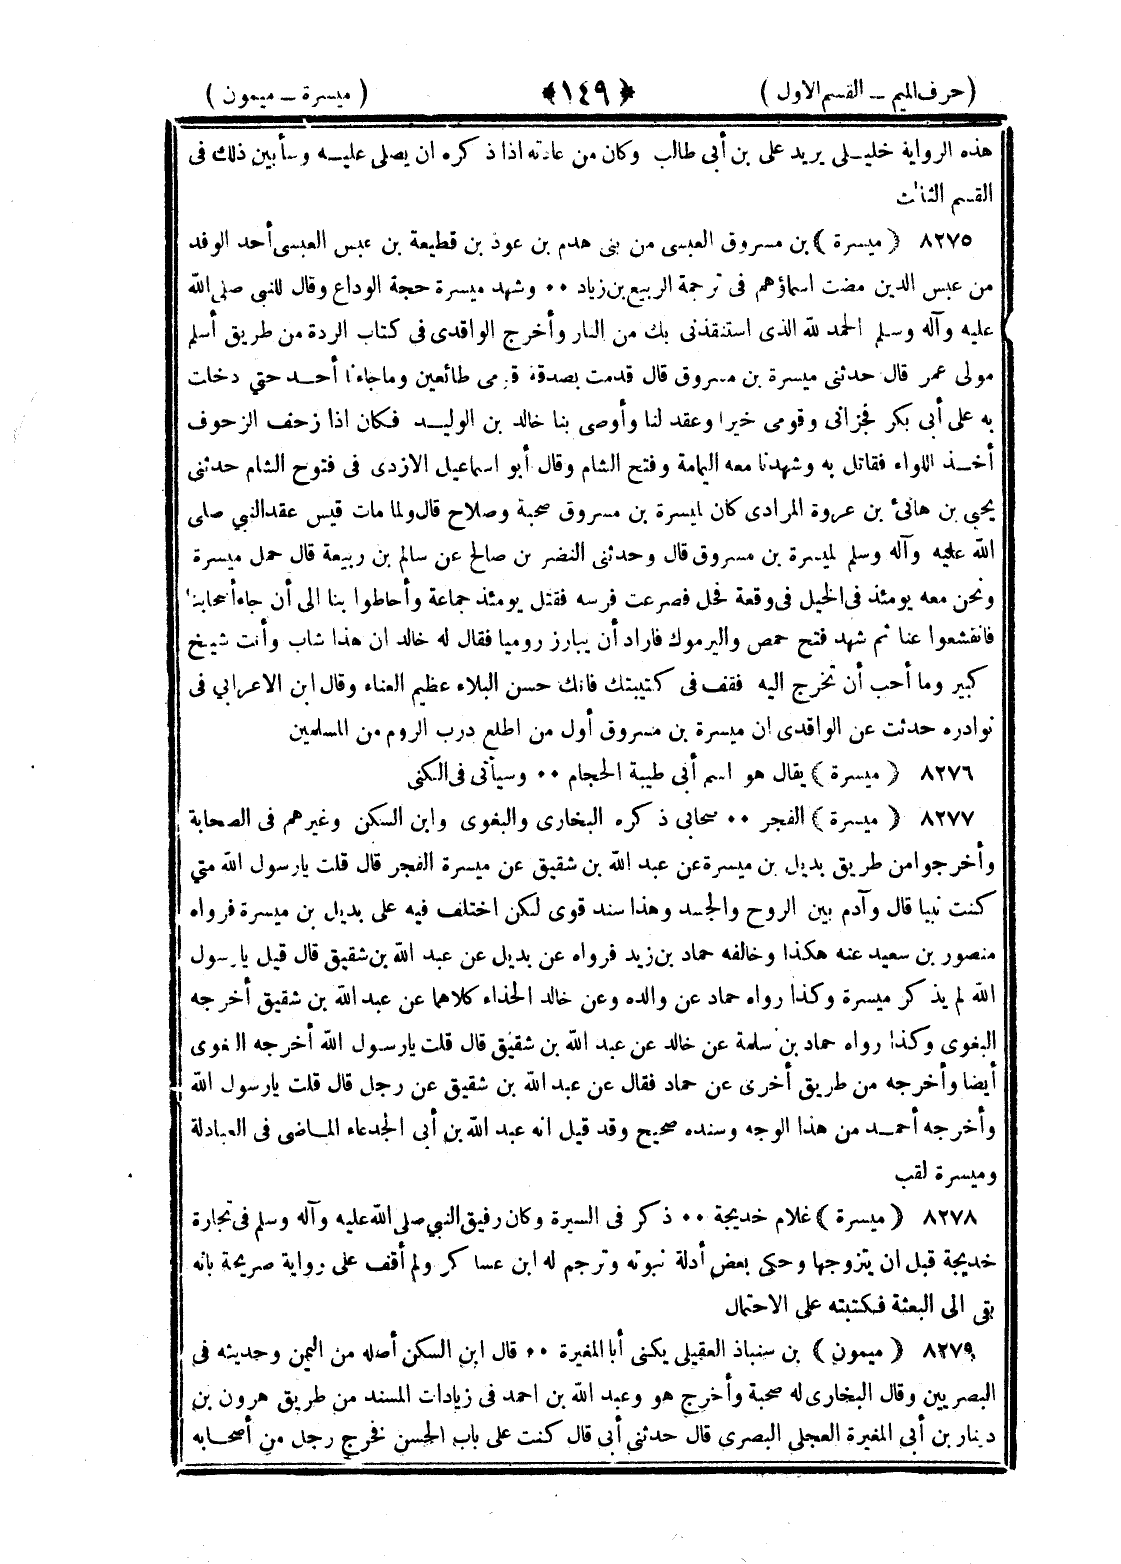 (حرف الميم ـ القسم الاول) ﴿١٤٩﴾ (ميسرة ـ ميمون)
هذه الرواية خليلى يريد على بن أبى طالب وكان من عادته اذا ذكره ان يصلى عليه وسأبين ذلك فى
القسم الثالث
٨٢٧٥ (ميسرة) بن مسروق العبسى من بنى هدم بن عوذ بن قطيعة بن عبس العبسى أحد الوفد
من عبس الذين مضت اسماؤهم فى ترجمة الربيع بن زياد ٠٠ وشهد ميسرة حجة الوداع وقال للنبى صلى الله
عليه وآله وسلم الحمد لله الذى استنقذنى بك من النار وأخرج الواقدى فى كتاب الردة من طريق أسلم
مولى عمر قال حدثنى ميسرة بن مسروق قال قدمت بصدقة قومى طائعين وماجاءنا أحد حتي دخلت
به على أبى بكر فجزانى وقومى خيرا وعقد لنا وأوصى بنا خالد بن الوليد فكان اذا زحف الزحوف
أخذ اللواء فقاتل به وشهدنا معه اليمامة وفتح الشام وقال أبو اسماعيل الازدى فى فتوح الشام حدثنى
يحيى بن هانئ بن عروة المرادى كان لميسرة بن مسروق صحبة وصلاح قال ولما مات قيس عقد النبي صلى
الله عليه وآله وسلم لميسرة بن مسروق قال وحدثنى النضر بن صالح عن سالم بن ربيعة قال حمل ميسرة
ونحن معه يومئذ فى الخيل فى وقعة فحل فصرعت فرسه فقتل يومئذ جماعة وأحاطوا بنا الى أن جاء أصحابنا
فانقشعوا عنا ثم شهد فتح حمص واليرموك فاراد أن يبارز روميا فقال له خالد ان هذا شاب وأنت شيخ
كبير وما أحب أن تخرج اليه فقف فى كتيبتك فانك حسن البلاء عظيم الغناء وقال ابن الاعرابي فى
نوادره حدثت عن الواقدى ان ميسرة بن مسروق أول من اطلع درب الروم من المسلمين
٨٢٧٦ (ميسرة) يقال هو اسم أبى طيبة الحجام ٠٠ وسيأتى فى الكنى
٨٢٧٧ (ميسرة) الفجر ٠٠ صحابى ذكره البخارى والبغوى وابن السكن وغيرهم فى الصحابة
وأخرجوا من طريق بديل بن ميسرة عن عبد الله بن شقيق عن ميسرة الفجر قال قلت يارسول الله متي
كنت نبيا قال وآدم بين الروح والجسد وهذا سند قوى لكن اختلف فيه على بديل بن ميسرة فرواه
منصور بن سعيد عنه هكذا وخالفه حماد بن زيد فرواه عن بديل عن عبد الله بن شقيق قال قيل يارسول
الله لم يذكر ميسرة وكذا رواه حماد عن والده وعن خالد الحذاء كلاهما عن عبد الله بن شقيق أخرجه
البغوى وكذا رواه حماد بن سلمة عن خالد عن عبد الله بن شقيق قال قلت يارسول الله أخرجه البغوى
أيضا وأخرجه من طريق أخرى عن حماد فقال عن عبد الله بن شقيق عن رجل قال قلت يارسول الله
وأخرجه أحمد من هذا الوجه وسنده صحيح وقد قيل انه عبد الله بن أبى الجدعاء الماضى فى العبادلة
وميسرة لقب
٨٢٧٨ (ميسرة) غلام خديجة ٠٠ ذكر فى السيرة وكان رفيق النبي صلى الله عليه وآله وسلم فى تجارة
خديجة قبل ان يتزوجها وحكى بعض أدلة نبوته وترجم له ابن عساكر ولم أقف على رواية صريحة بانه
بقى الى البعثة فكتبته على الاحتمال
٨٢٧٩ (ميمون) بن سنباذ العقيلى يكنى أبا المغيرة ٠٠ قال ابن السكن أصله من اليمن وحديثه فى
البصريين وقال البخارى له صحبة وأخرج هو وعبد الله بن احمد فى زيادات المسند من طريق هرون بن
دينار بن أبى المغيرة العجلى البصرى قال حدثنى أبى قال كنت على باب الحسن فخرج رجل من أصحابه